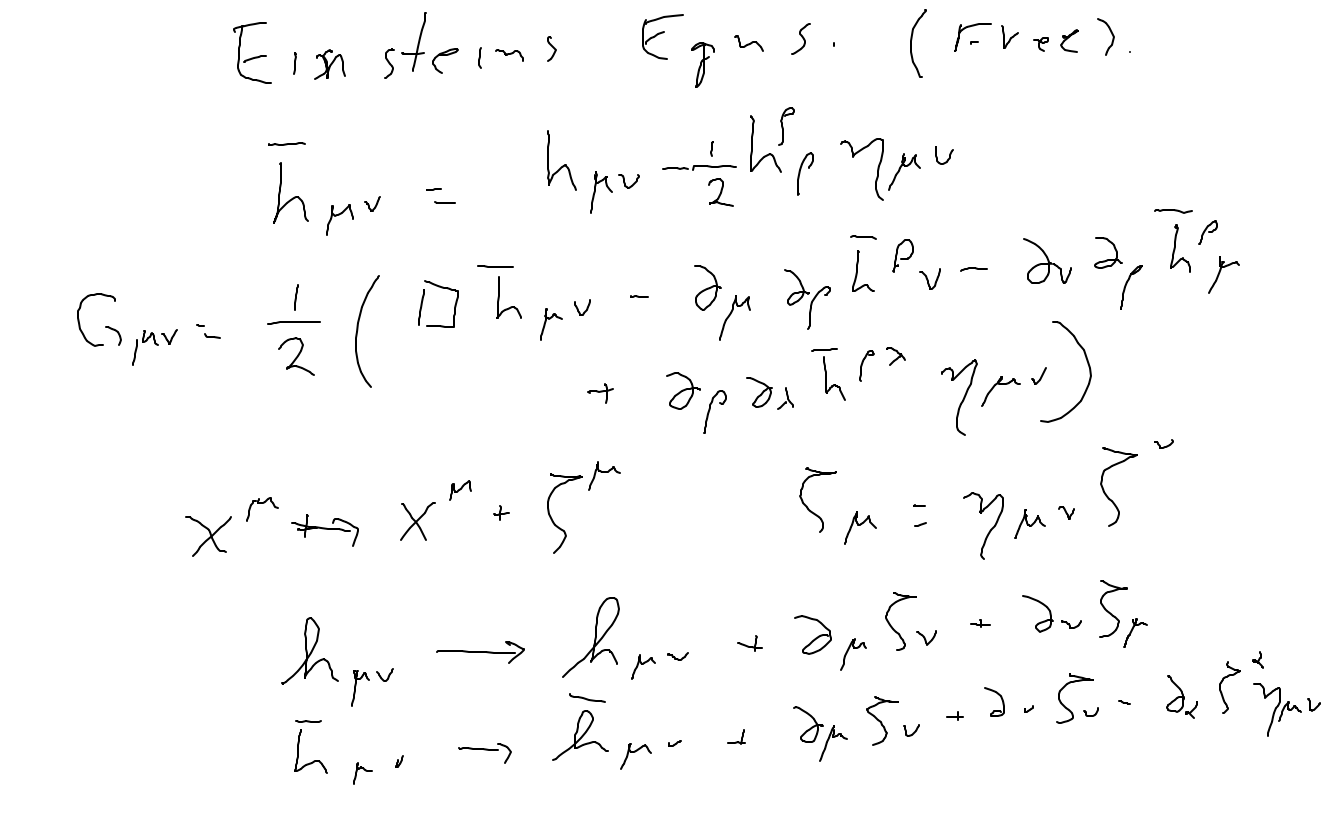 Einsteins Eqns. (Free).
h̄_μν = h_μν - 1/2 h^ρ_ρ η_μν
G_μν = 1/2 ( □ h̄_μν - ∂_μ ∂_ρ h̄^ρ_ν - ∂_ν ∂_ρ h̄^ρ_μ
+ ∂_ρ ∂_λ h̄^ρλ η_μν )
x^μ ↦ x^μ + ζ^μ ζ_μ = η_μν ζ^ν
h_μν → h_μν + ∂_μ ζ_ν + ∂_ν ζ_μ
h̄_μν → h̄_μν + ∂_μ ζ_ν + ∂_ν ζ_ν - ∂_α ζ^α η_μν